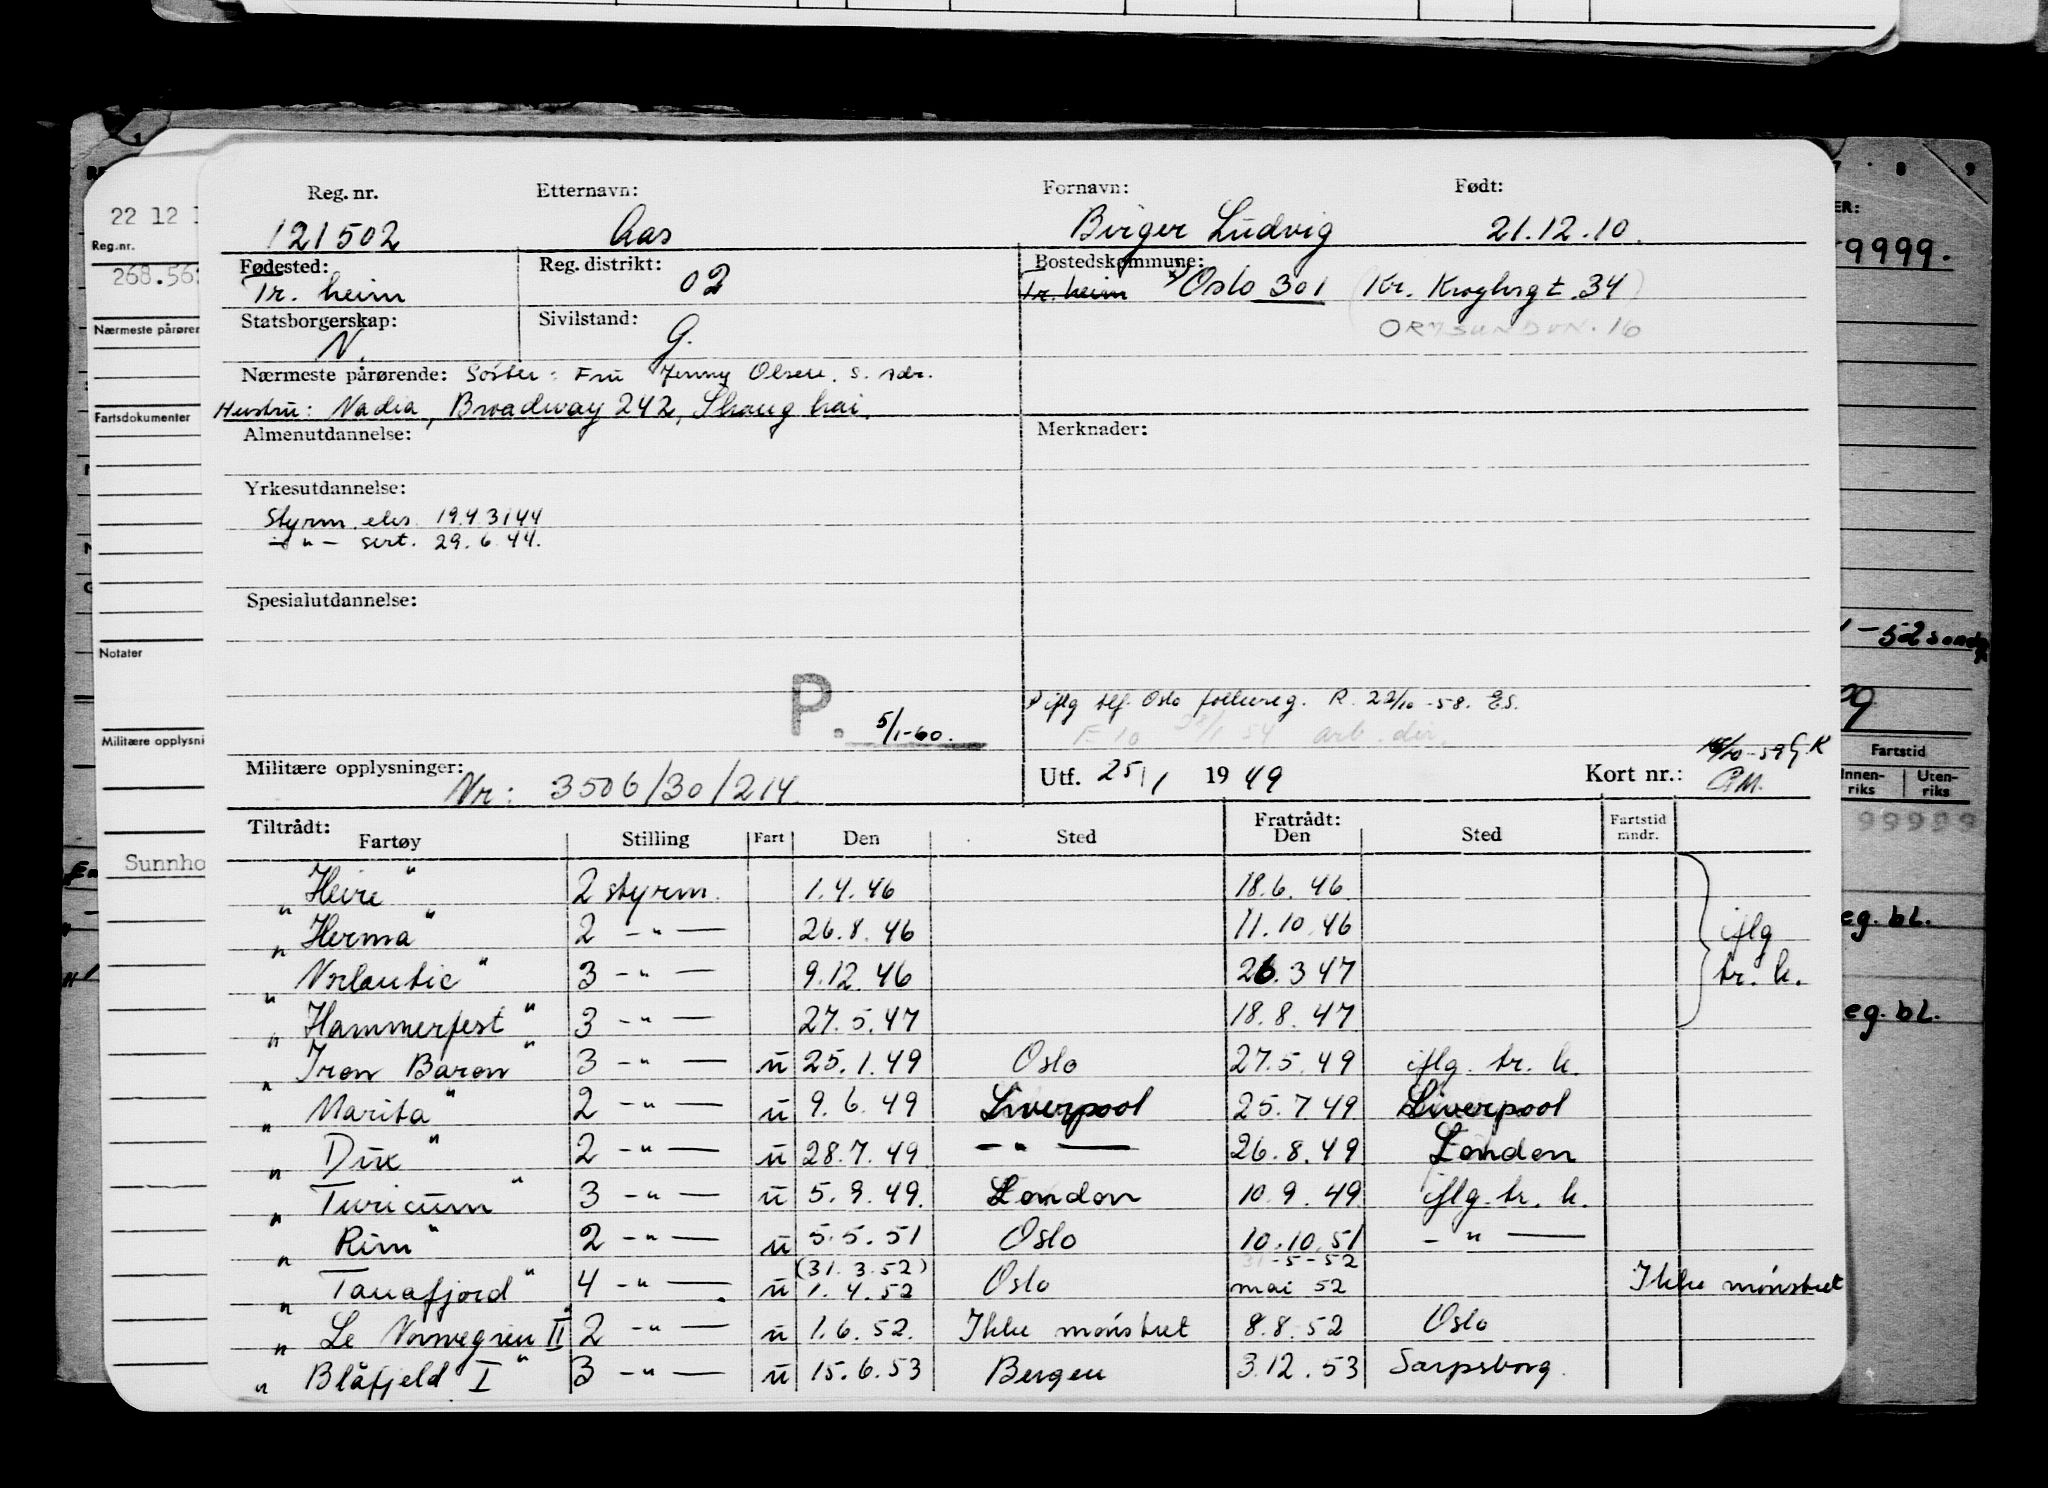 Reg. nr. Etternavn: Fornavn: Født:
121502 Aas Birger Ludvig 21.12.10.
Fødested: Reg. distrikt: Bostedskommune:
Tr. heim 02 Tr. heim Oslo 301 (Kr. Kroghsgt. 34)
Statsborgerskap: Sivilstand: ORMSUNDVN. 16
N. G.
Nærmeste pårørende: Søster: Fru Jenny Olsen, s. adr.
Hustru: Nadia, Broadway 242, Shanghai.
Almenutdannelse: Merknader:
Yrkesutdannelse:
Styrm. eks. 19.4 3144
-"- sert. 29.6.44.
Spesialutdannelse:
P. 5/1-60.
iflg tlf. Oslo folkereg. R. 22/10-58. E.S.
F 10 /1 54 arb. dir.
Militære opplysninger: Nr: 3506/30/214.
Utf. 25/1 1949 Kort nr.: G.M.
Tiltrådt: Fratrådt: Fartstid mndr.
Fartøy Stilling Fart Den Sted Den Sted
"Heire" 2 styrm. 1.4.46 18.6.46 iflg tr. k.
"Herma" 2 -"- 26.8.46 11.10.46
"Norlantic" 3 -"- 9.12.46 26.3 47
"Hammerfest" 3 -"- 27.5.47 18.8.47
"Iron Baron" 3 -"- u 25.1.49 Oslo 27.5.49 iflg. tr. k.
"Marita" 2 -"- u 9.6.49 Liverpool 25.7.49 Liverpool
"Dux" 2 -"- u 28.7.49 -"- 26.8.49 London
"Turicum" 3 -"- u 5.9.49. London 10.9.49 iflg. tr. k.
"Rim" 2 -"- u 5.5.51 Oslo 10.10.51 -"-
(31.3.52) 31-5-52
"Tanafjord" 4 -"- u 1.4.52 Oslo mai 52 Ikke mønstret
"Le Norvegien II" 2 -"- u 1.6.52. Ikke mønstret 8.8.52 Oslo
"Blåfjeld I" 3 -"- u 15.6.53 Bergen 3.12.53 Sarpsborg.
22 12
Reg.nr.
268.56
Nærmeste pårører
Fartsdokumenter
Notater
Militære opplysni
Sunnho
8 9
ER:
9999.
-52
Fartstid
Innenriks Utenriks
99999
eg. bl.
eg. bl.